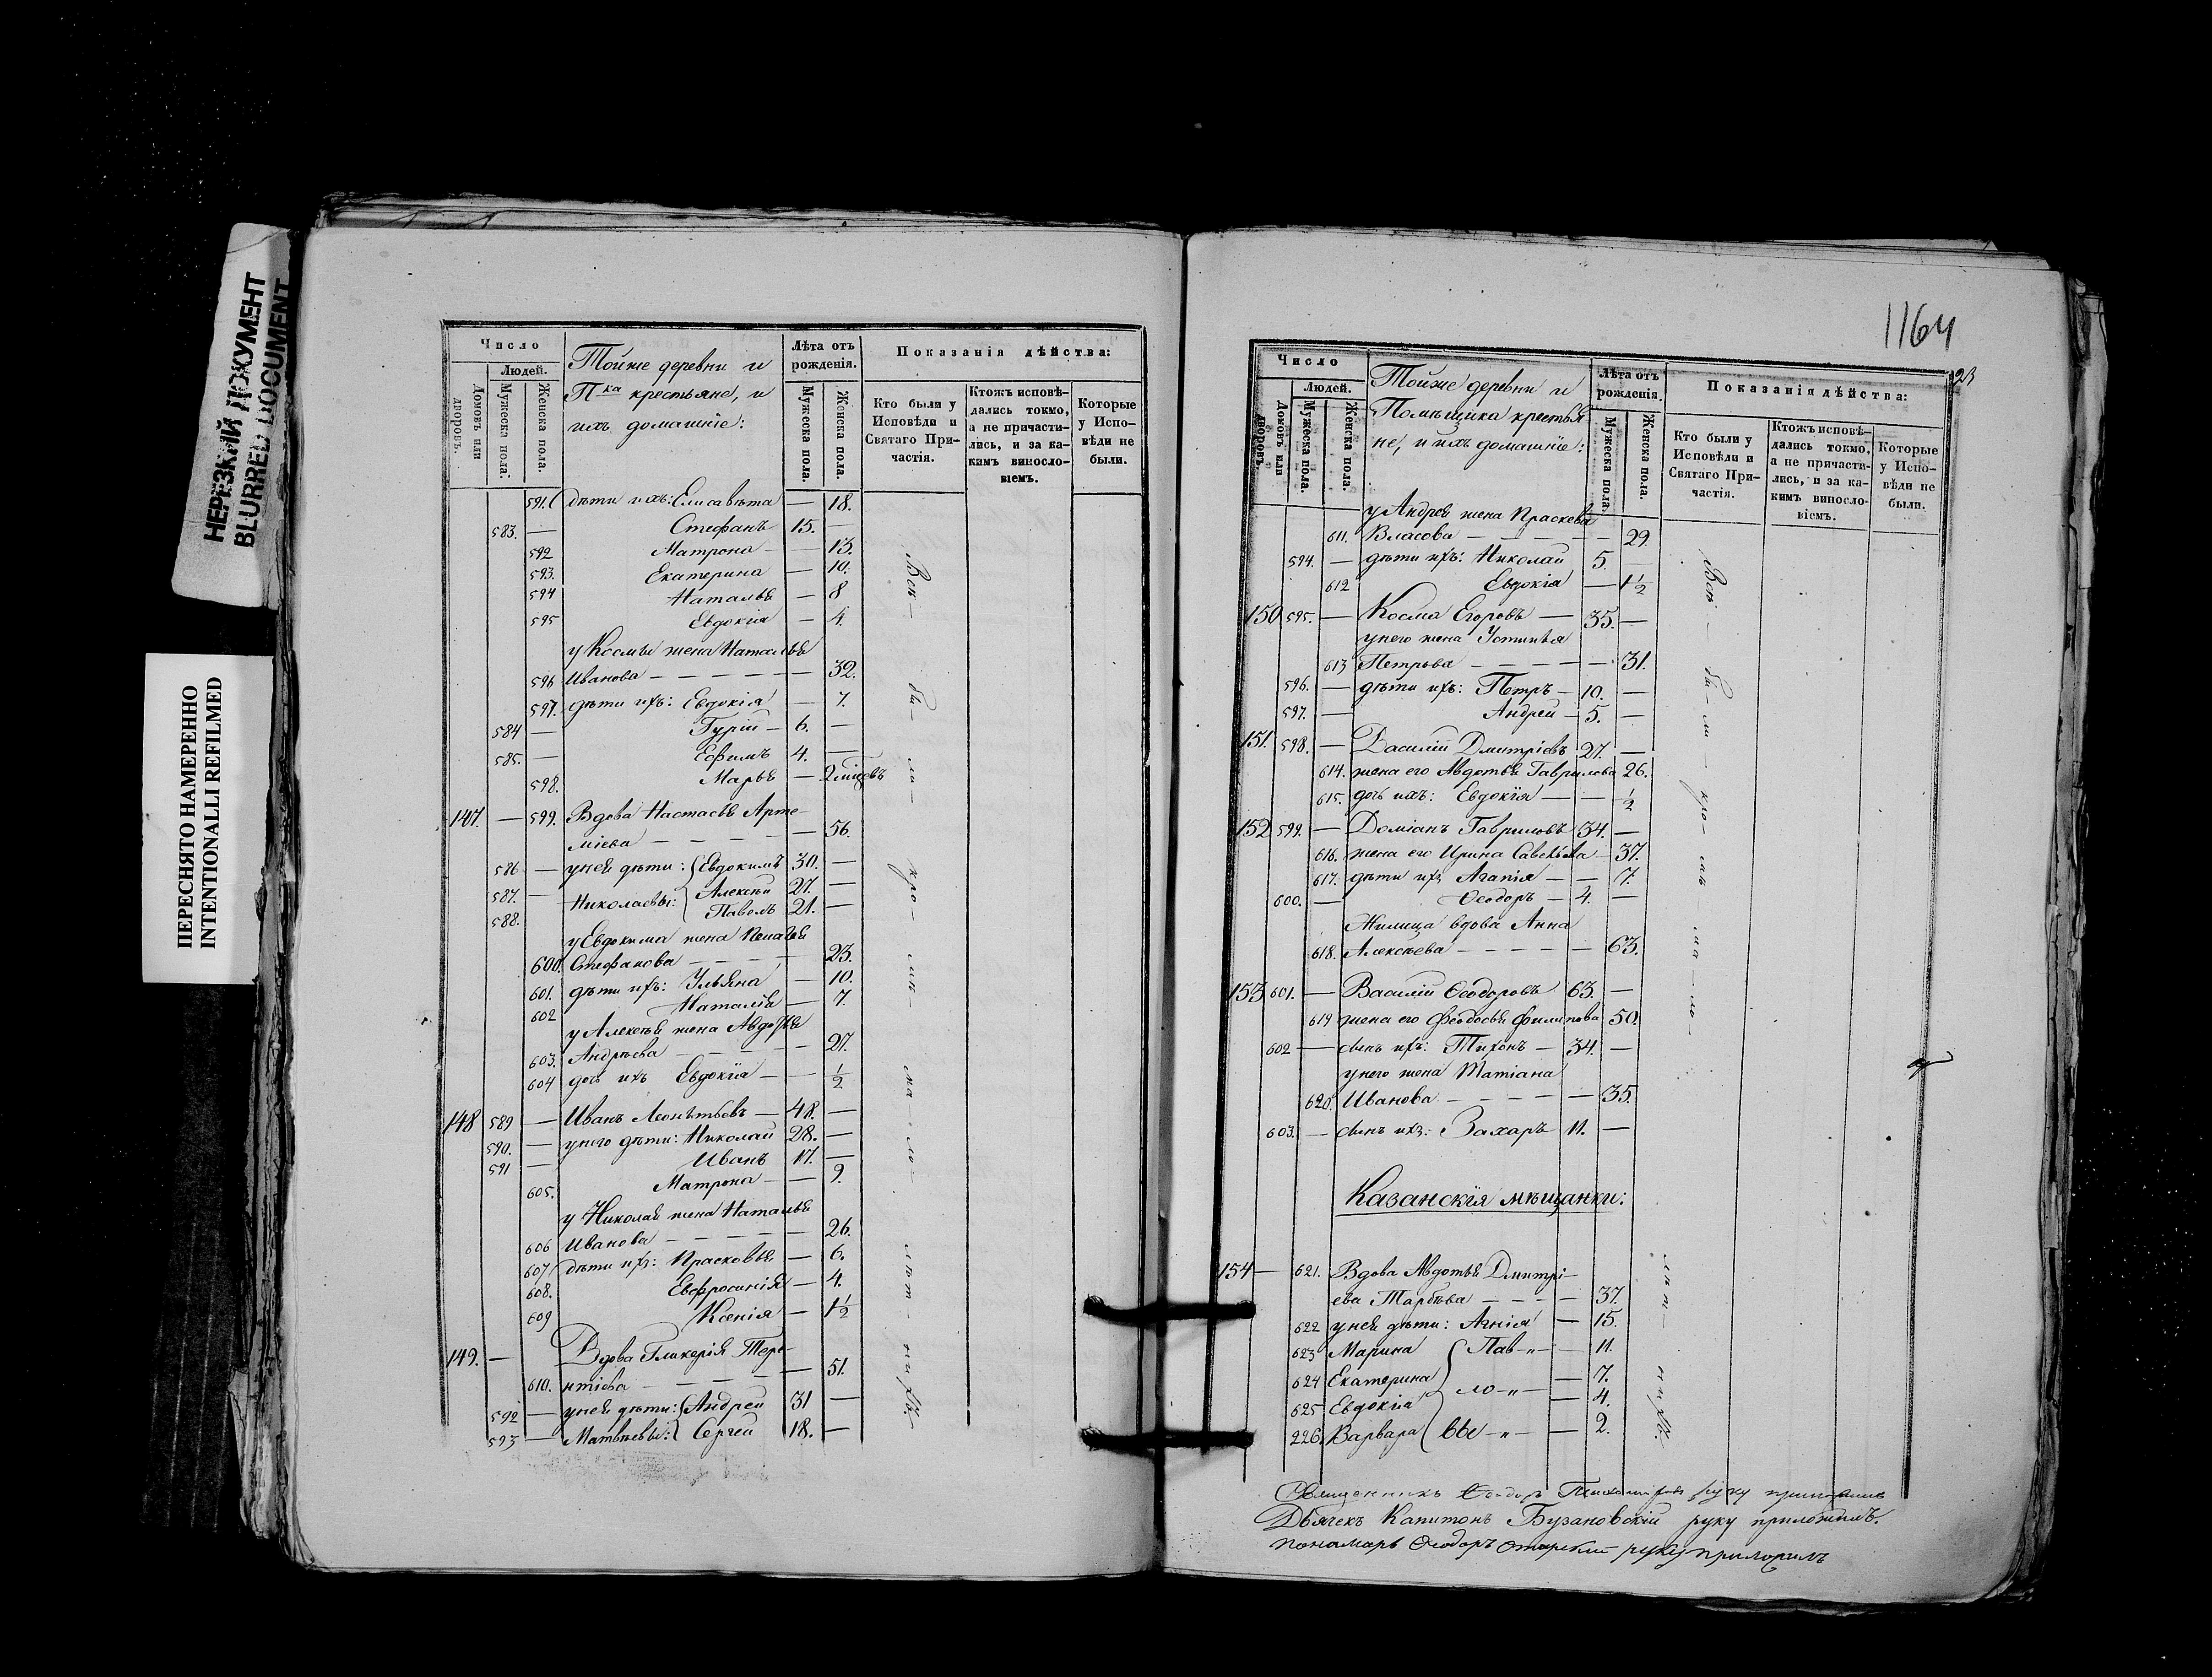 НЕРЕЗКИЙ ДОКУМЕНТ
BLURRED DOCUMENT
ПЕРЕСНЯТО НАМЕРЕННО
INTENTIONALLI REFILMED
Число
Людей.
Домовъ или дворовъ.
Мужеска пола.
Женска пола.
Тойже деревни и
П-ка крестьяне, и
ихъ домашніе:
Лѣта отъ рожденія.
Мужеска пола.
Женска пола.
Показанія дѣйства:
Кто были у Исповѣди и Святаго Причастія.
Ктожъ исповѣдались токмо, а не причастились, и за какимъ винословіемъ.
Которые у Исповѣди не были.
591. дѣти ихъ: Елисавѣта — 18.
583. — Стефанъ 15. —
592 Матрона — 13.
593. Екатерина — 10.
594 Наталья — 8
595 Евдокія — 4.
у Космы жена Наталья
596 Иванова — — — — — 32.
597. дѣти ихъ: Евдокія — 7.
584 — Гурій — 6. —
585. — Ефимъ 4. —
598. Марья — 2 міцевъ
147. — 599. Вдова Настасья Арте-
міева — — — — 56.
586 — у ней дѣти: Евдокимъ 30. —
587. — Николаевы: Алексѣй 27. —
588. Павелъ 21. —
у Евдокима жена Пелагея
600. Стефанова — — — — 23.
601. дѣти ихъ: Ульяна — 10.
602 Наталія — 7.
у Алексѣя жена Авдотья
603. Андрѣева — — — — 27.
604 дочь ихъ Евдокія — — ½
148 589 — Иванъ Леонтьевъ — 48. —
590. — у него дѣти: Николай 28. —
591 — Иванъ 17. —
605. Матрона — — 9.
у Николая жена Наталья
606 Иванова — — — — — 26.
607 дѣти ихъ: Прасковья — 6.
608. Евфросинія — 4.
609 Ксенія — 1½
149. — Вдова Гликерія Тере-
610. нтіева — — — — — 51.
592 — у ней дѣти: Андрей 31 —
593 — Матвѣевы: Сергей 18. —
1164
Число
Людей.
Домовъ или дворовъ.
Мужеска пола.
Женска пола.
Тойже деревни и
Помѣщика крестья-
не, и ихъ домашніе:
Лѣта отъ рожденія.
Мужеска пола.
Женска пола.
Показанія дѣйства:
Кто были у Исповѣди и Святаго Причастія.
Ктожъ исповѣдались токмо, а не причастились, и за какимъ винословіемъ.
Которые у Исповѣди не были.
23
у Андрея жена Праскева
611. Власова — — — — — 29.
594. — дѣти ихъ: Николай 5. —
612 Евдокія — 1½
150 595. — Косма Егоровъ — 35. —
у него жена Устинья
613 Петрова — — — — — 31.
596. — дѣти ихъ: Петръ — 10. —
597. — Андрей — 5. —
151. 598. — Василій Дмитріевъ 27. —
614. жена его Авдотья Гаврилова 26.
615. дочь ихъ: Евдокія — — ½
152 599. — Доміанъ Гавриловъ 34. —
616. жена его Ирина Савельева — 37.
617. дѣти ихъ Агапія — — 7.
600. — Ѳеодоръ — 4. —
Жилица вдова Анна
618. Алексѣева — — — — — 63.
153 601. — Василій Ѳеодоровъ 63. —
619 жена его Феодосья Филипова 50.
602 — сынъ ихъ: Тихонъ — 34. —
у него жена Татіана
620. Иванова — — — — — 35.
603. — сынъ ихъ: Захаръ 11. —
Казанскія мѣщанки:
154 — 621. Вдова Авдотья Дмитрі-
ева Тарбѣева — — — — 37.
622 у ней дѣти: Агнія — 15.
623 Марина Пав-„— — 11.
624 Екатерина — 7.
ло-„—
625 Евдокія — 4.
226. Варвара вы-„— — 2.
Священникъ Ѳеодоръ руку приложилъ
Дьячекъ Капитонъ Бузановскій руку приложилъ.
пономарь Ѳеодоръ руку приложилъ